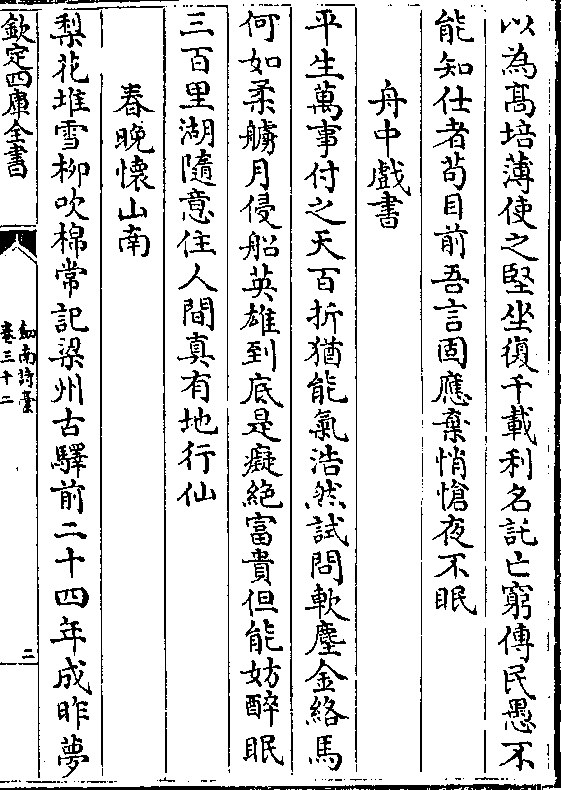 以為髙培薄使之堅坐復千載利名託亡窮傳民愚不
能知仕者苟目前吾言固應棄悄愴夜不眠
舟中戲書
平生萬事付之天百折猶能氣浩然試問軟塵金絡馬
何如柔艣月侵船英雄到底是癡絶富貴但能妨醉眠
三百里湖隨意住人間真有地行仙
春晚懷山南
梨花堆雪柳吹棉常記梁州古驛前二十四年成昨夢
欽定四庫全書
劒南詩稾
卷三十二
二